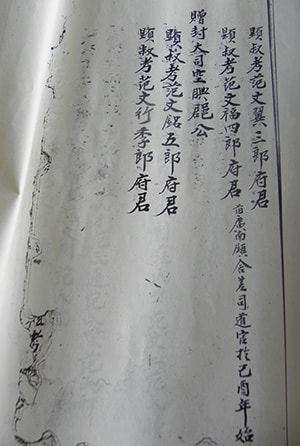 顯叔考范文翼三郎府君
顯叔考范文福四郎府君 前廣南顯合差司道官於己酉年始
贈封大司空映郡公
顯叔考范文銘五郎府君
顯叔考范文行季郎府君